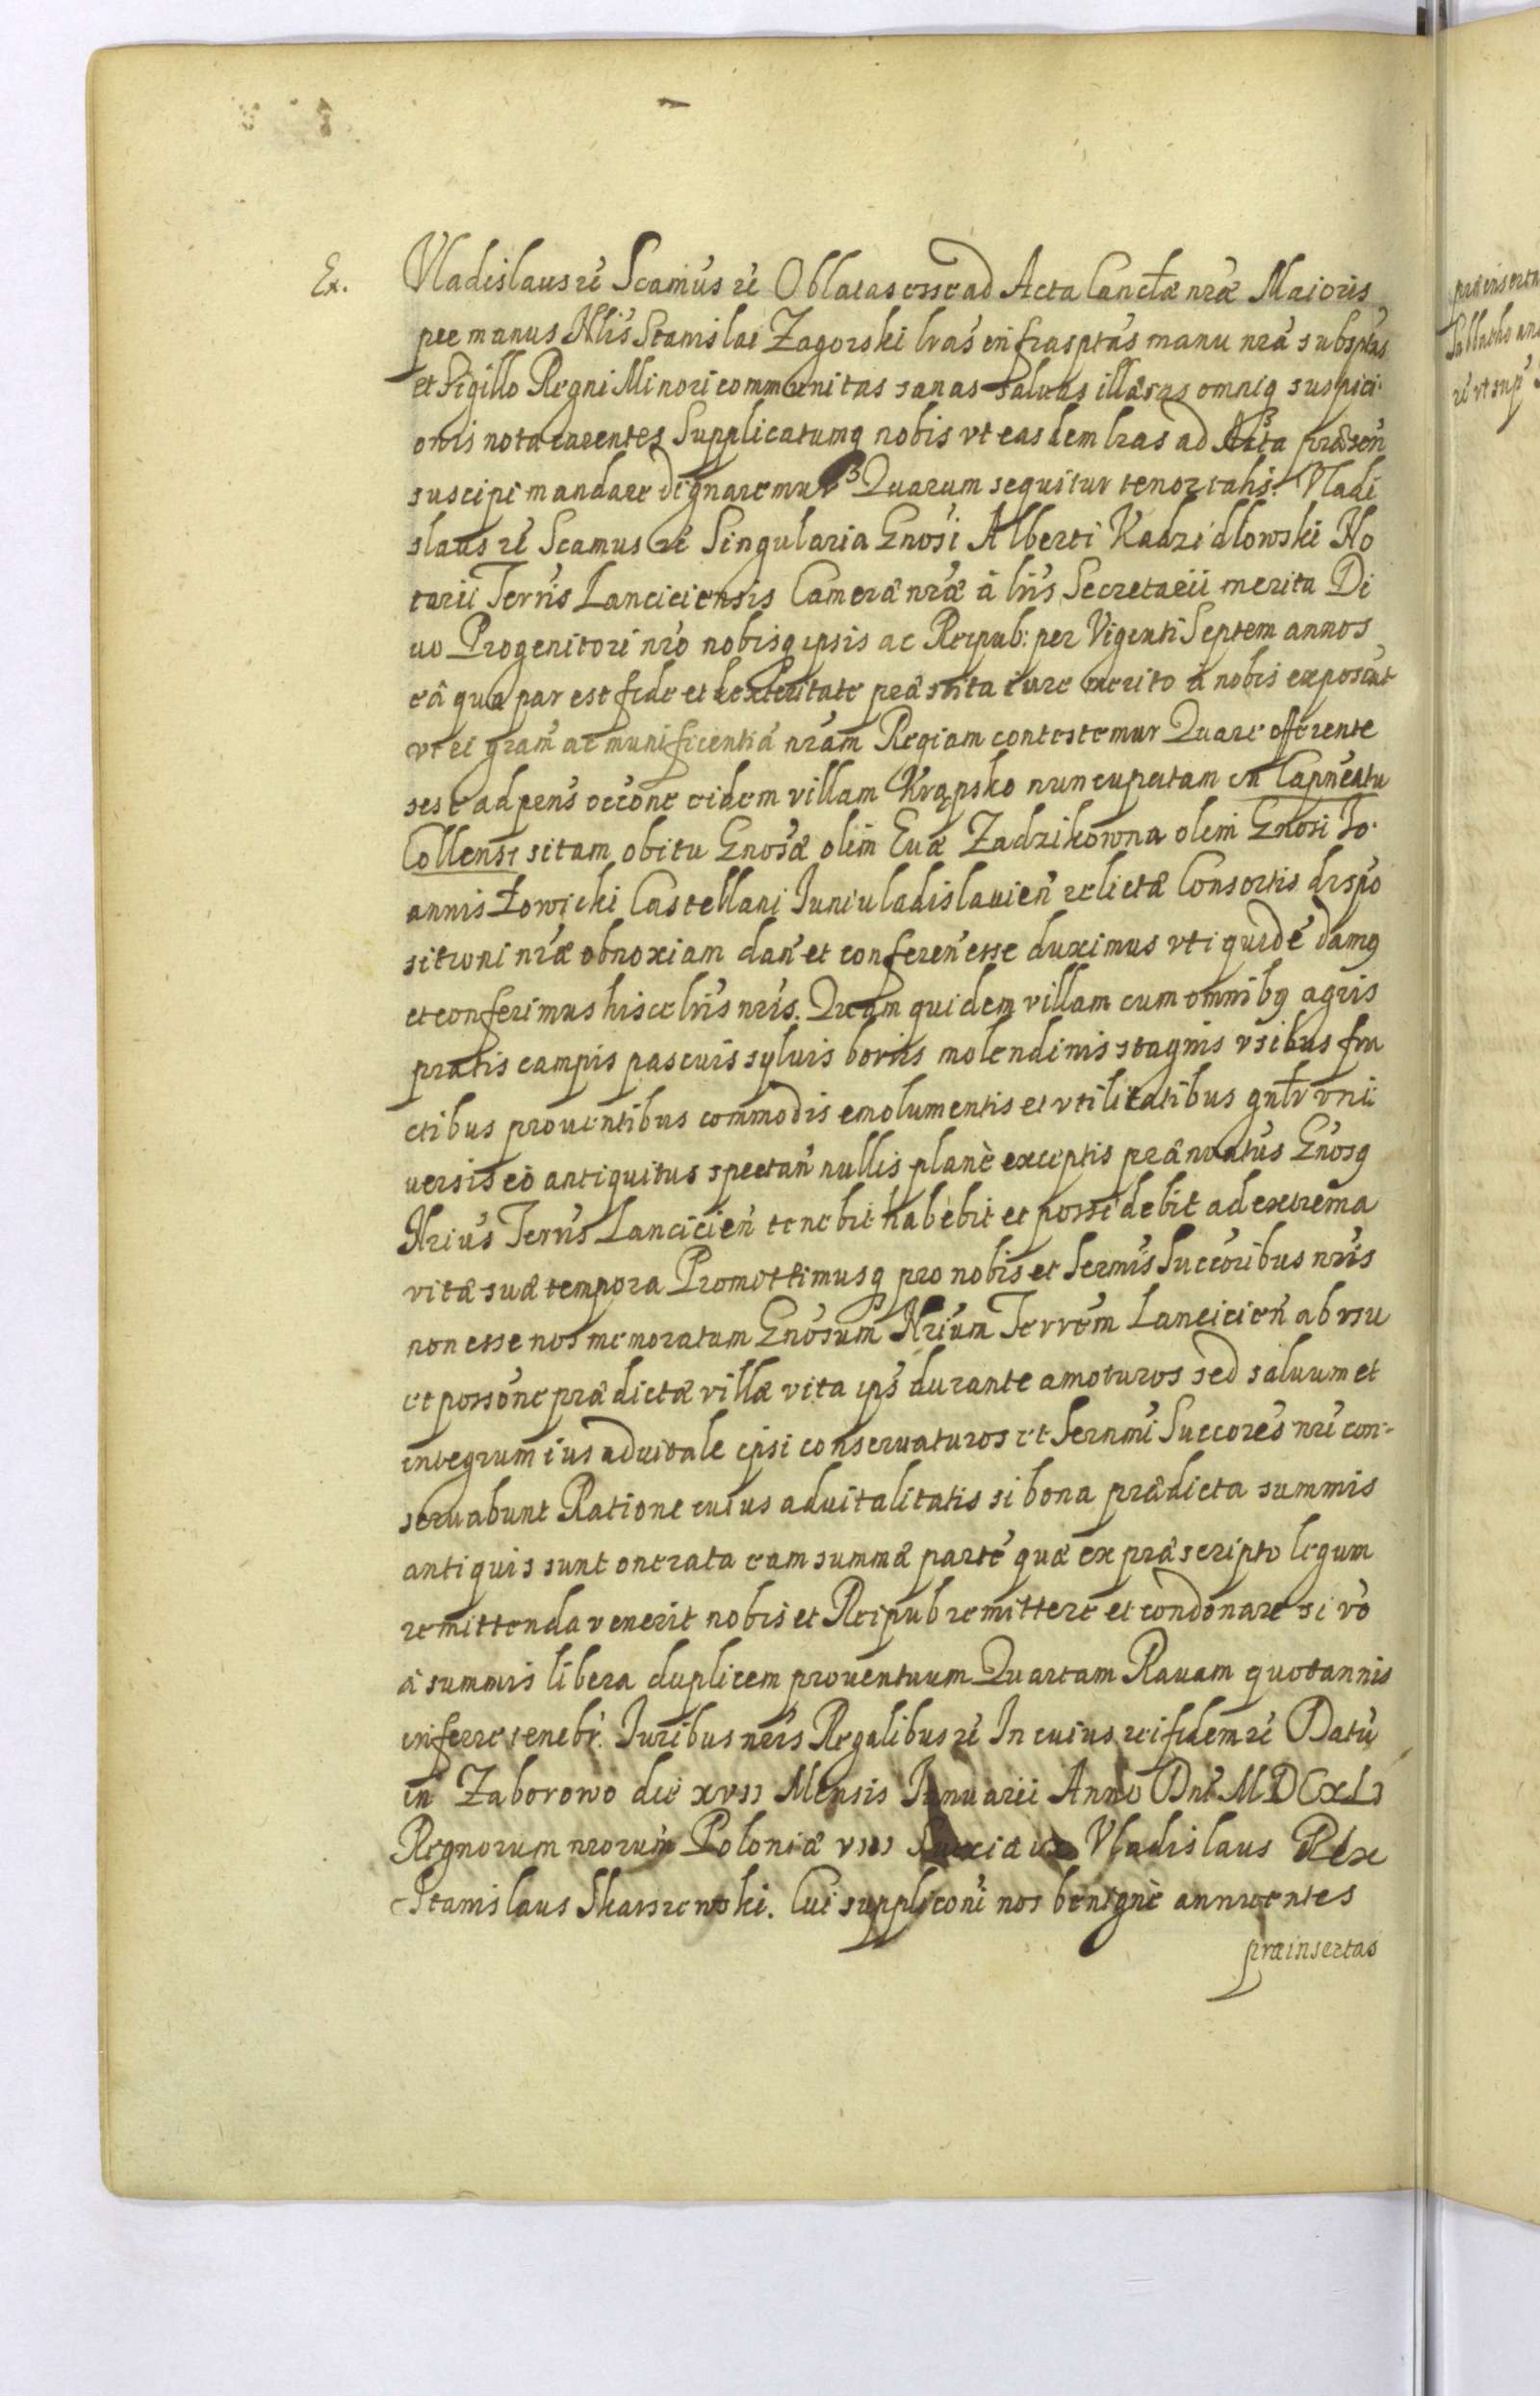 Ex. Vladislaus rẽ Scamus rẽ Oblatas esse ad Acta Canctæ nræ Maioris
per manus Nlis Stanislai Zagorski lras infrasptas manu nra subsptas
et Sigillo Regni Minori communitas sanas saluas illæsas omniq suspici-
onis nota carentes Supplicatumq nobis vt easdem lras ad Acta præsen
suscipi mandare dignaremur Quarum sequitur tenor talis. Vladi
slaus rẽ Scamus rẽ Singularia Gnosi Alberti Kadzidłowski No
tarii Terris Lanciciensis Cameræ nræ â lris Secretarii merita Di
uo Progenitori nro nobisq ipsis ac Reipub: per Viginti Septem annos
eâ qua par est fide et dexteritate præstita iure merito â nobis exposcut
vt ei gram ac munificentiã nram Regiam contestemur Quare offerente
sese ad pens occone eidem villam Krąpsko nuncupatam in Capneatu
Collensi sitam obitu Gnosæ olim Euæ Zadzikowna olim Gnosi Jo-
annis Łowicki Castellani Juniuladislauien relictæ Consortis dispo
sitioni nræ obnoxiam dan et conferen esse duximus vti quidẽ damq
et conferimus hisce lris nris. Quam quidem villam cum omnibq agris
pratis campis pascuis syluis boriis molendinis stagnis vsibus fru
ctibus prouentibus commodis emolumentis et vtilitatibus gnlr vni
uersis eò antiquitus spectan nullis planè exceptis prænoatus Gnosq
Nrius Terris Lancicien tenebit habebit et possidebit ad extrema
vitæ suæ tempora Promittimusq pro nobis et Sermis Succoribus nris
non esse nos memoratum Gnosum Nrium Terrem Lancicien ab vsu
et possone prædictæ villæ vita ips durante amoturos sed saluum et
integrum ius aduitale ipsi conseruaturos et Sernmi Succores nri con-
seruabunt Ratione cuius aduitalitatis si bona prædicta summis
antiquis sunt onerata eam summæ partẽ quæ ex præscripto legum
remittenda venerit nobis et Reipub remittere et condonare si vo
â summis libera duplicem prouentuum Quartam Rauam quotannis
inferre tenebr. Juribus nris Regalibus rẽ In cuius rei fidem rẽ Datũ
in Zaborowo die XVII Mensis Januarii Anno Dni MDCXLI
Regnorum nrorum Poloniæ VIII Vladislaus Rex
Stanislaus Skarszewski. Cui supplicōni nos benignè annuentes
præinsertas